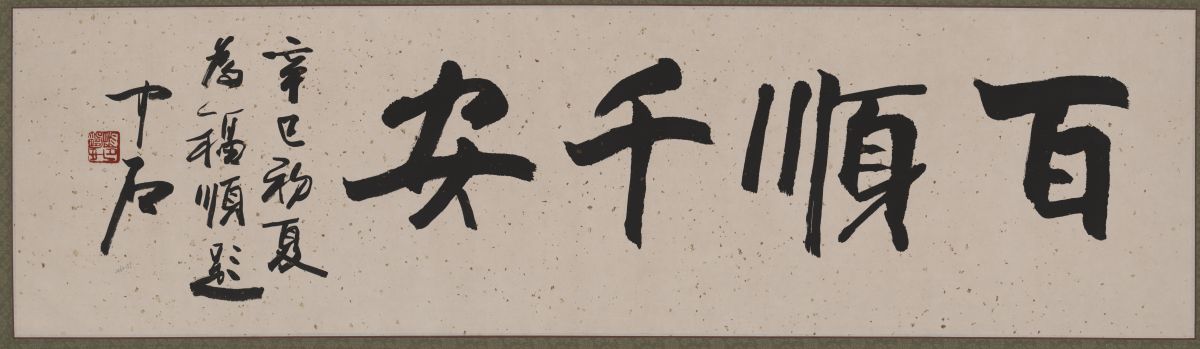 百順千安
辛巳初夏
為福順題
中石